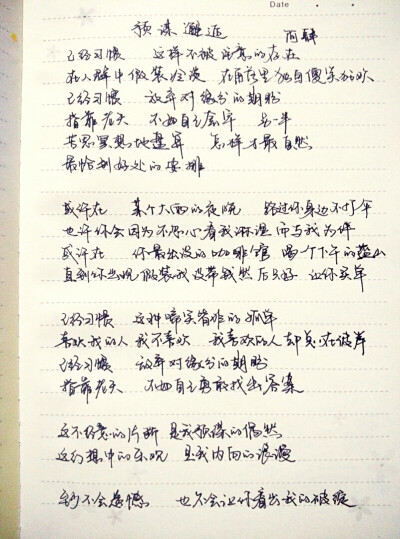 Date
预谋邂逅 阿肆
已经习惯 这样不被注意的存在
在人群中假装冷漠 在房间里独自傻呆孤欢
已经习惯 放弃对缘分的期盼
指靠老天 不如自己会算 另一半
苦思冥想地盘算 怎样才最自然
最恰到好处的安排
或许在 某个大雨的夜晚 路过你身边不打伞
也许你会因为不忍心看我淋湿而与我为伴
或许在 你最出没的咖啡馆 喝个下午的蓝山
直到你出现假装我没带钱然后只好 让你买单
已经习惯 这种啼笑皆非的孤单
喜欢我的人我不喜欢 我喜欢的人却总在彼岸
已经习惯 放弃对缘分的期盼
指靠老天 不如自己勇敢找出答案
这不经意的片断 是我预谋的偶然
这幻想中的乐观 是我内向的浪漫
我不会遗憾 也不会让你看出我的破绽